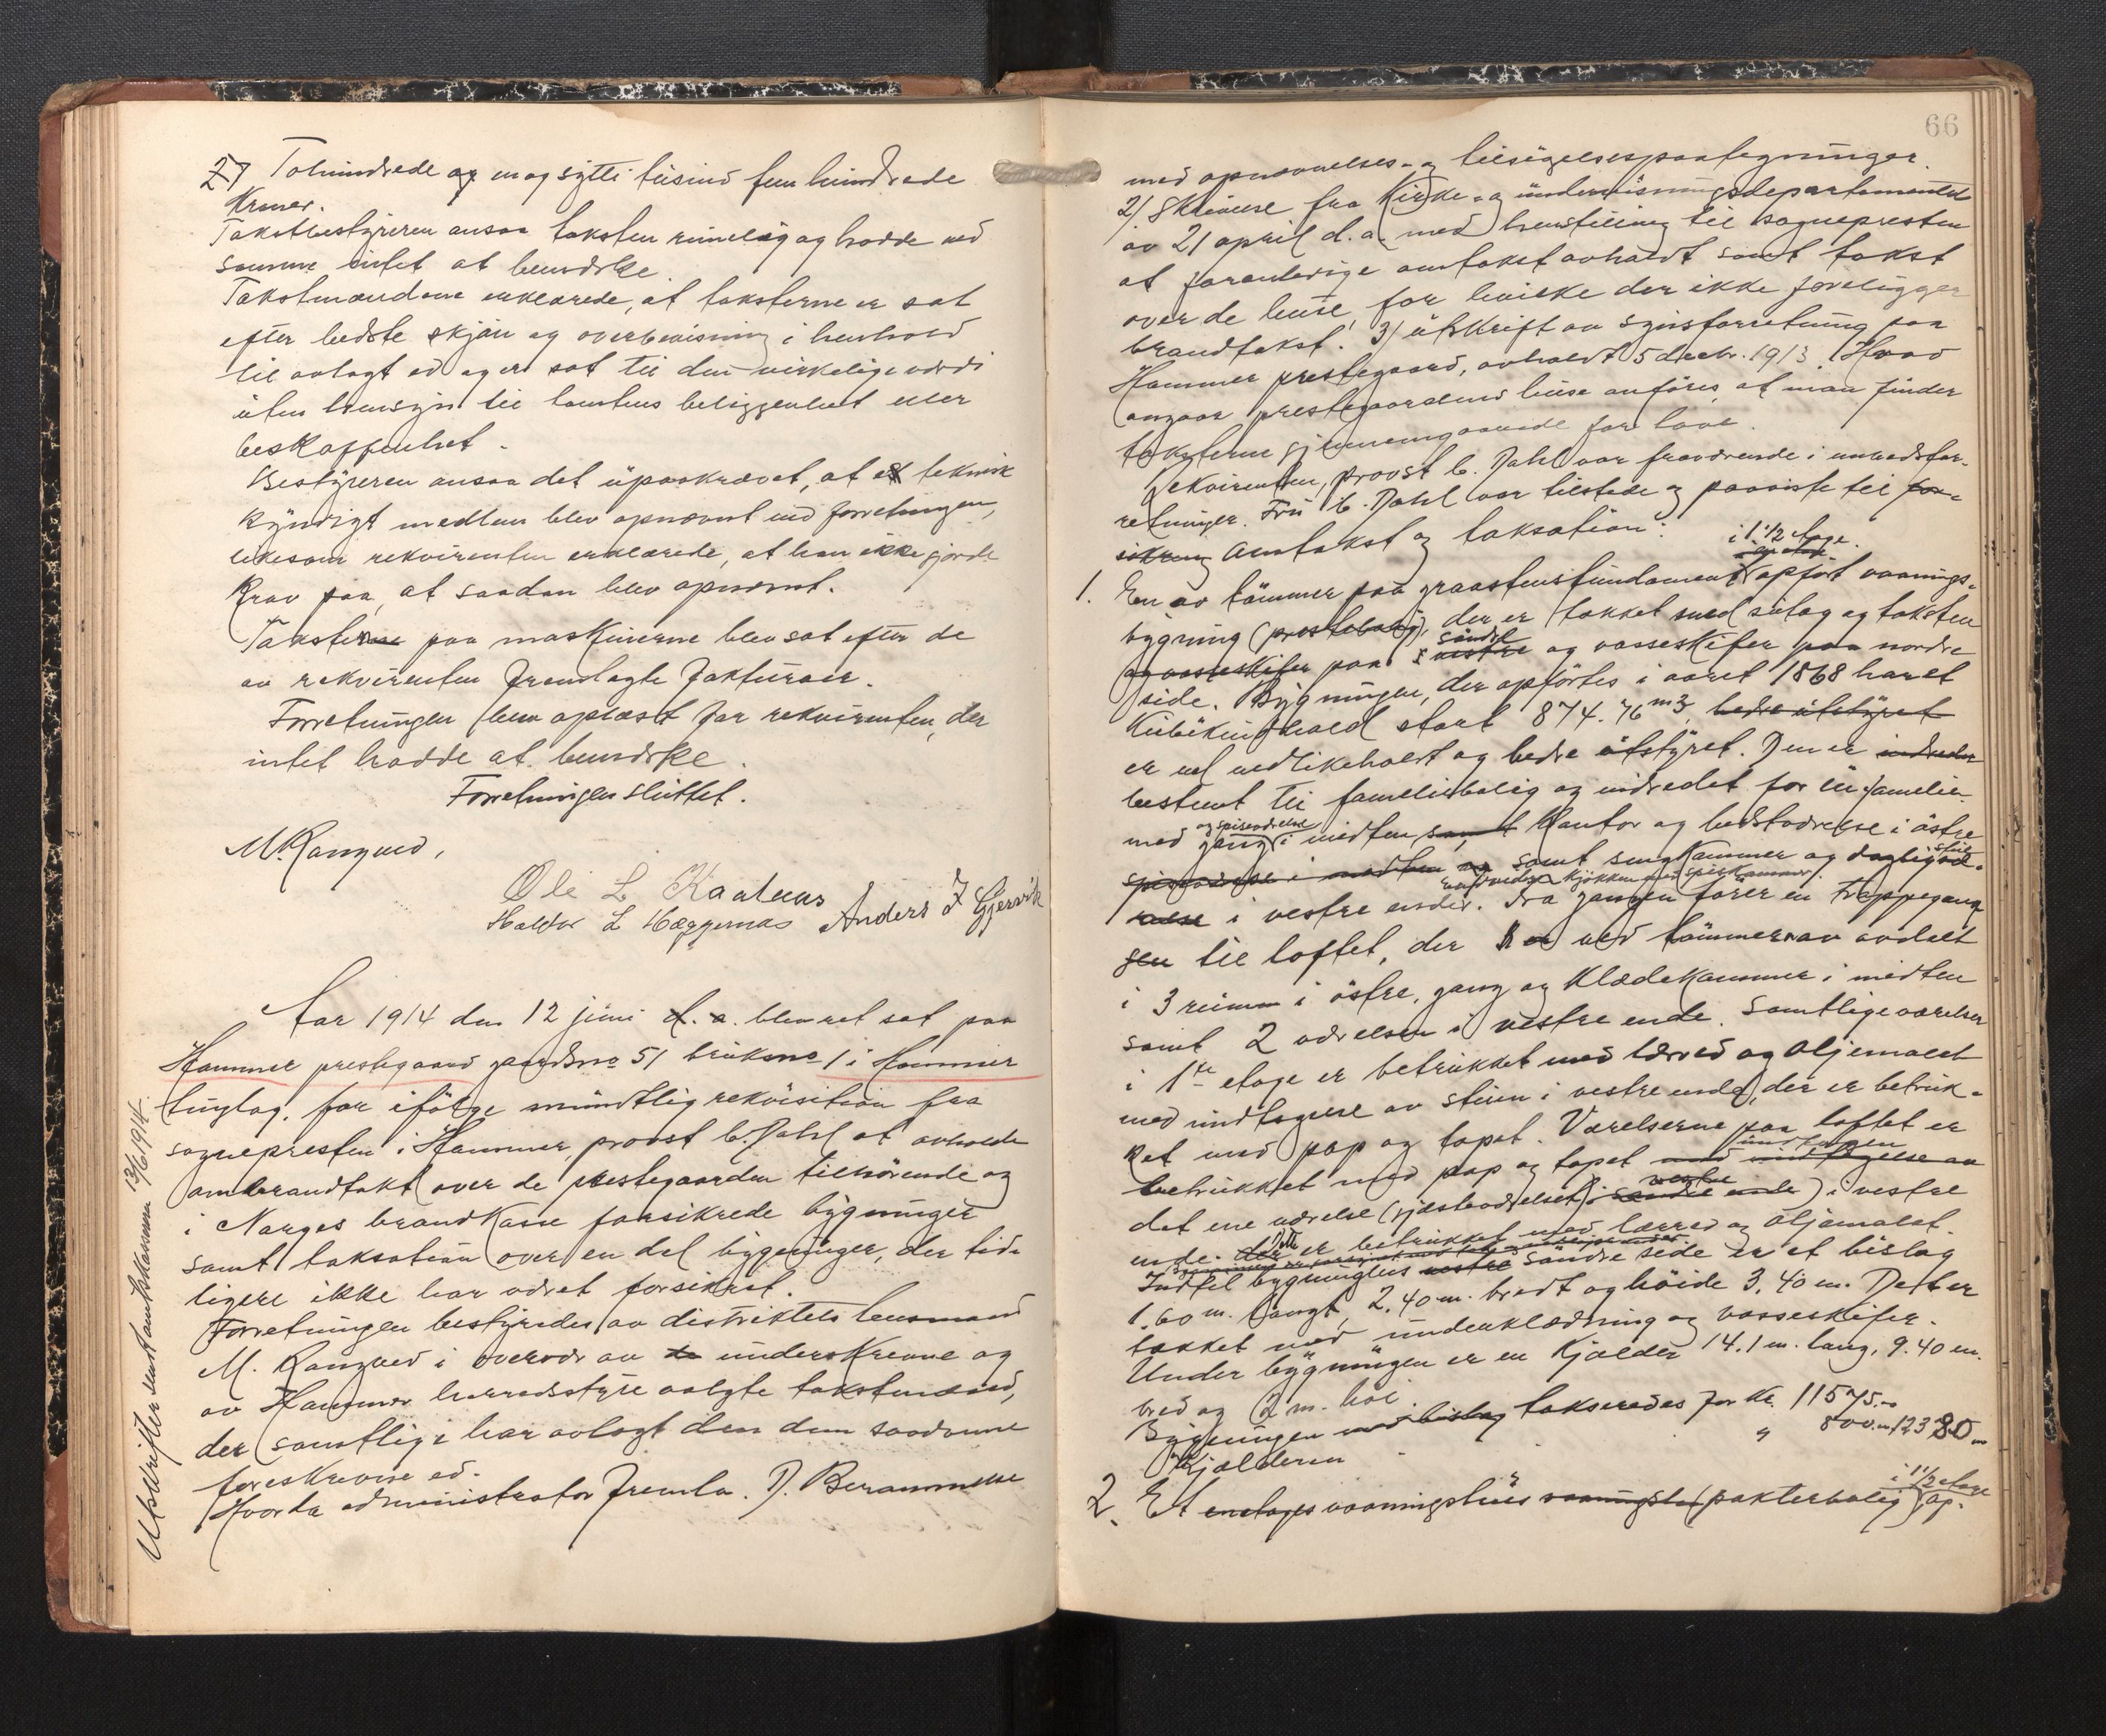 27 Tohundrede og en og sytti tusind fem hundrede
Kroner.
Takstbestyreren ansaa taksten rimelig og hadde ved
samme intet at bemerke.
Takstmændene erklærede, at taksterne er sat
efter bedste skjøn og overbevisning i henhold
til avlagt ed og er sat til den virkelige værdi
uten hensyn til tomtens beliggenhet eller
beskaffenhet.
Bestyreren ansaa det upaakrævet, at et teknisk
kyndigt medlem blev opnævnt ved forretningen,
likesom rekvirenten erklærede, at han ikke gjorde
krav paa, at saadan blev opnævnt.
Taksterne paa maskinerne blev sat efter de
av rekvirenten fremlagte fakturaer.
Forretningen blev oplæst for rekvirenten, der
intet hadde at bemerke.
Forretningen sluttet.
M. Langved,
Ole L Kaalaas
Haldor L Hæggernæs Anders J Gjervik
Aar 1914 den 12 juni d. a. blev ret sat paa
Hammer prestegaard gaardsno 51 bruksno 1 i Hammer
tinglag, for ifølge mundtlig rekvisition fra
sognepresten i Hammer, provst C. Dahl at avholde
ombrandtakt over de prestegaarden tilhørende og
i Norges brandkasse forsikrede bygninger
samt taksation over en del bygninger, der tid-
ligere ikke har været forsikret.
Forretningen bestyredes av distriktets lensmand
M. Langved i overvær av de underskrevne og
av Hammer herredsstyre valgte takstmænd,
der samtlige har avlagt den dem saadanne
foreskrevne ed.
Hvorda administrator fremla. 1). Berammelse
Utskrifter sendt amtskassereren 13/6 1914.
66
med opnævnelses- og tilsigelsespaategninger.
2) Skrivelse fra Kirke- og undervisningsdepartementet
av 21 april d.a. med henstilling til sognepresten
at foranledige omtakst avholdt samt takst
over de huse, for hvilke der ikke foreligger
brandtakst. 3) utskrift av synsforretning paa
Hammer prestegaard, avholdt 5 decbr. 1913. Hvad
angaar prestegaardens huse anføres, at man finder
taksterne gjennemgaaende for lave.
Rekvirenten, provst C. Dahl var fraværende i embedsfor-
retninger. Fru C. Dahl var tilstede og paaviste til for-
sikring omtakst og taksation:
i 1 1/2 etage.
1. En av tømmer paa graastensfundament opført vaanings-
bygning (prestebolig), der er takket med sutag og taksten
søndre
og vasseskifer paa vestre og vasseskifer paa nordre
side. Bygningen, der opførtes i aaret 1868 har et
kubikindhold stort 874.76 m3, bedre utstyret
er vel vedlikeholdt og bedre utstyret. Den er indredet
bestemt til familiebolig og indredet for en familie
og spiseværelse
med gang i midten samt kontor og bedstværelse i østre
stue
spiseværelse i midten og samt sengkammer og dagligvæ-
endvidere kjøkken med spiskammer
relse i vestre ende. Fra gangen fører en trappegang
gen til loftet, der er ved tømmer av avdelt
i 3 rum i østre, gang og klædekammer i midten
samt 2 værelser i vestre ende. Samtlige værelser
i 1ste etage er betrukket med lærred og oljemalet
med undtagelse av stuen i vestre ende, der er betruk-
ket med pap og tapet. Værelserne paa loftet er
undtagen
betrukket med pap og tapet med undtagelse av
vestre
det ene værelse (gjesteværelset) i søndre ende) i vestre
ende. der Dette er betrukket med lærred og oljemalet.
Indtil bygningens vestre søndre side er et bislag
1.60 m. langt, 2.40 m. bredt og høide 3.40 m. Det er
takket med underklædning og vasseskifer.
Under bygningen er en kjælder 14.1 m. lang, 9.40 m.
bred og 2 m. høi.
Bygningen med bislag takseredes for Kr. 11575.-
Kjælderen " 800.- 12380.-
i 1 1/2 etage
2. Et enetages vaaningshus vaaningshus (pakterbolig) op-